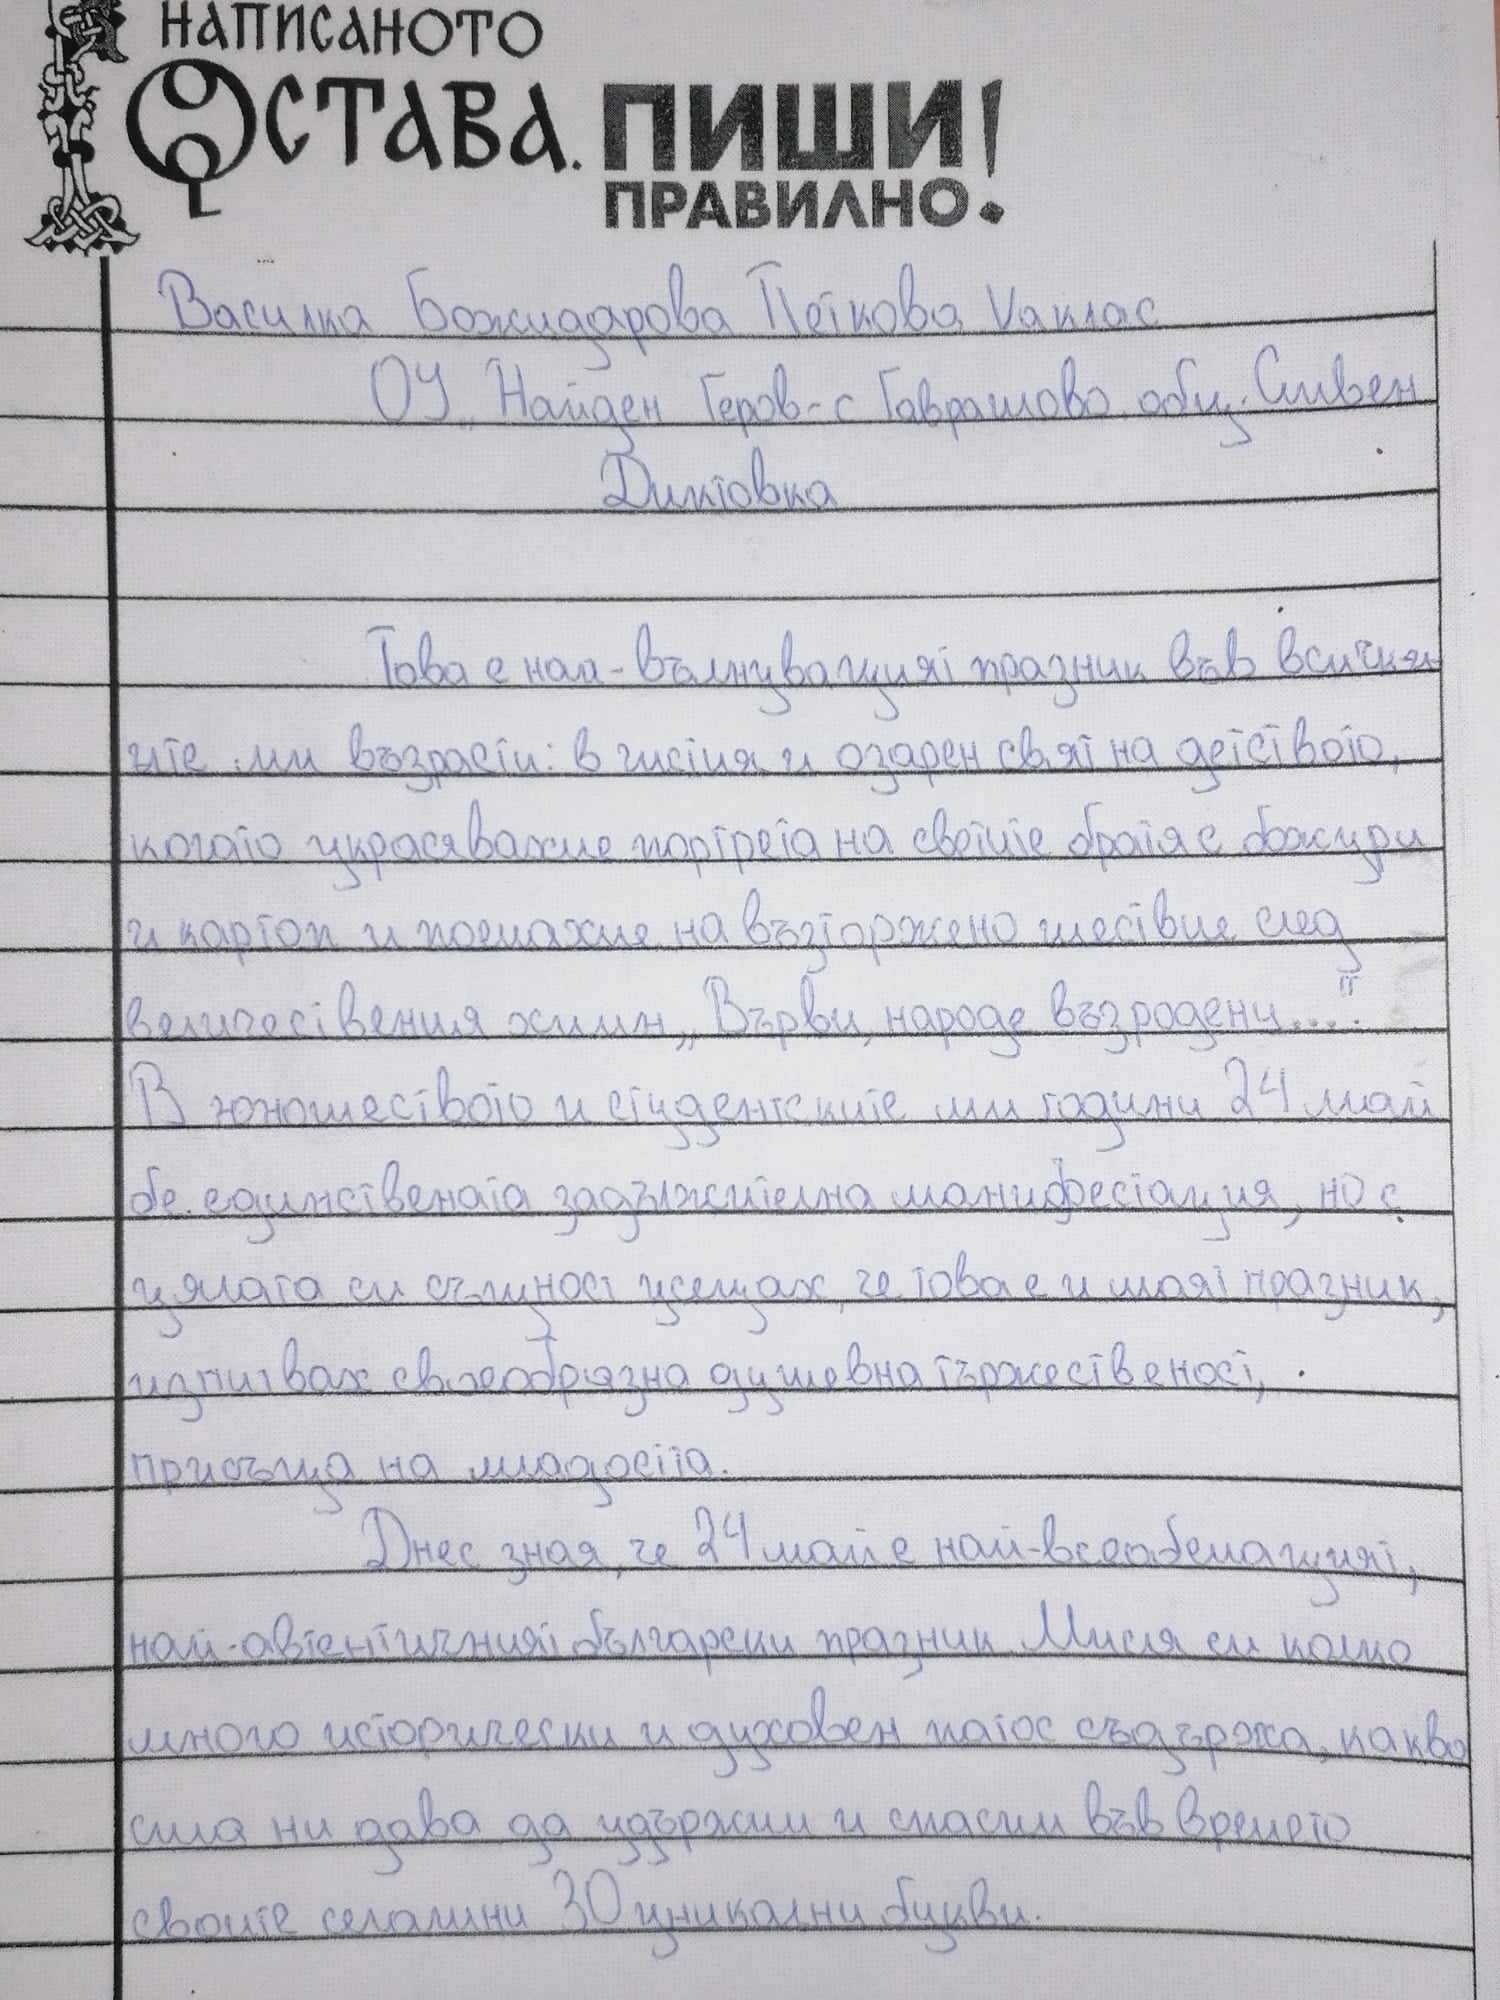 НАПИСАНОТО
ОСТАВА. ПИШИ
ПРАВИЛНО!
Василка Божидарова Петкова Vаклас
ОУ „Найден Геров-с Гавраилово общ. Сливен
Диктовка
Това е най-вълнуващият празник във всички
ите ми възрасти: в чистия и озарен свят на детството,
когато украсявахме портрета на светите братя с божури
и картоп и поемахме на възторжено шествие след
величествения химн „Върви, народе възродени....“
В юношеството и студентските ми години 24 май
бе единствената задължителна манифестация, но с
цялата си същност усещах, че това е и моят празник,
изпитвах своеобразна душевна тържественост,
присъща на младостта.
Днес зная, че 24 май е най-всеобемащият,
най-автентичният български празник. Мисля си колко
много исторически и духовен патос съдържа, какво
сила ни дава да удържим и спасим във времето
своите селамини 30 уникални букви.